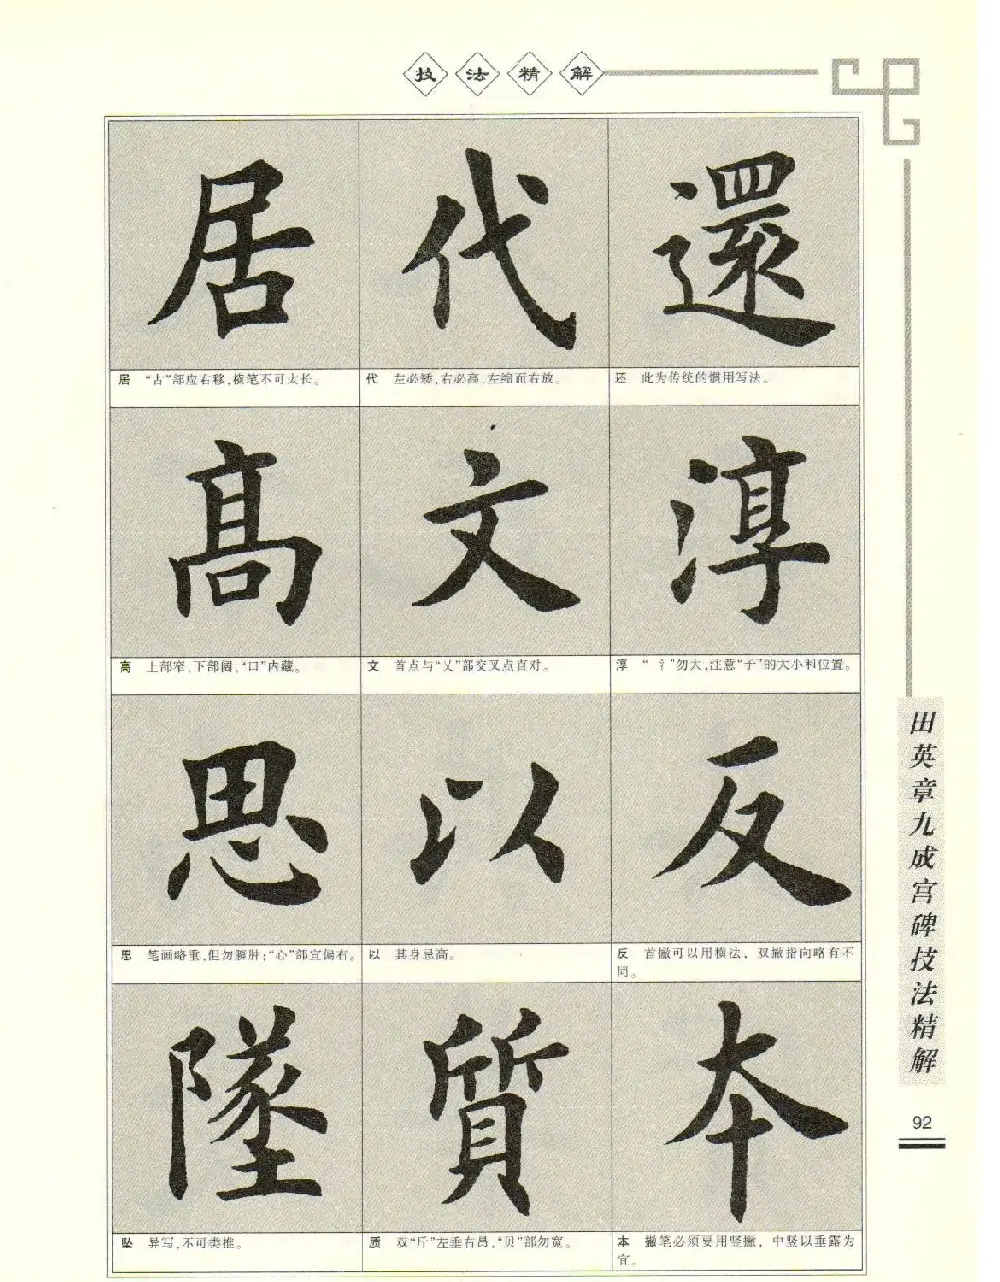 技法精解
居 代 還
居 “古”部应右移,横笔不可太长。
代 左必矮,右必高,左缩而右放。
还 此为传统的惯用写法。
高 文 淳
高 上部窄,下部阔,“口”内藏。
文 首点与“乂”部交叉点直对。
淳 “氵”勿大,注意“子”的大小和位置。
思 以 反
思 笔画略重,但勿臃肿;“心”部宜偏右。
以 其身忌高。
反 首撇可以用横法、双撇指向略有不
同。
墜 質 本
坠 异写,不可类推。
质 双“斤”左垂右昂,“贝”部勿宽。
本 撇笔必须要用竖撇,中竖以垂露为
宜。
田英章九成宫碑技法精解
92